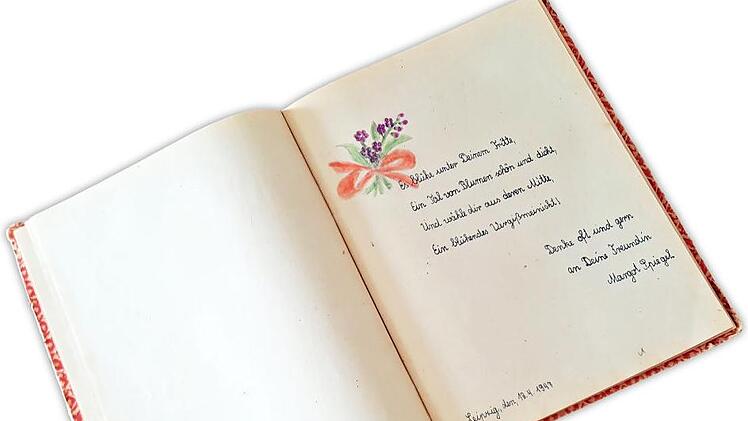 Es blühe unter Deinem Tritte,
Ein Tal von Blumen schön und dicht,
Und wähle dir aus deren Mitte,
Ein blühendes Vergißmeinicht!
Denke oft und gern
an Deine Freundin
Margot Spiegel
Leipzig, den, 18.4.1947